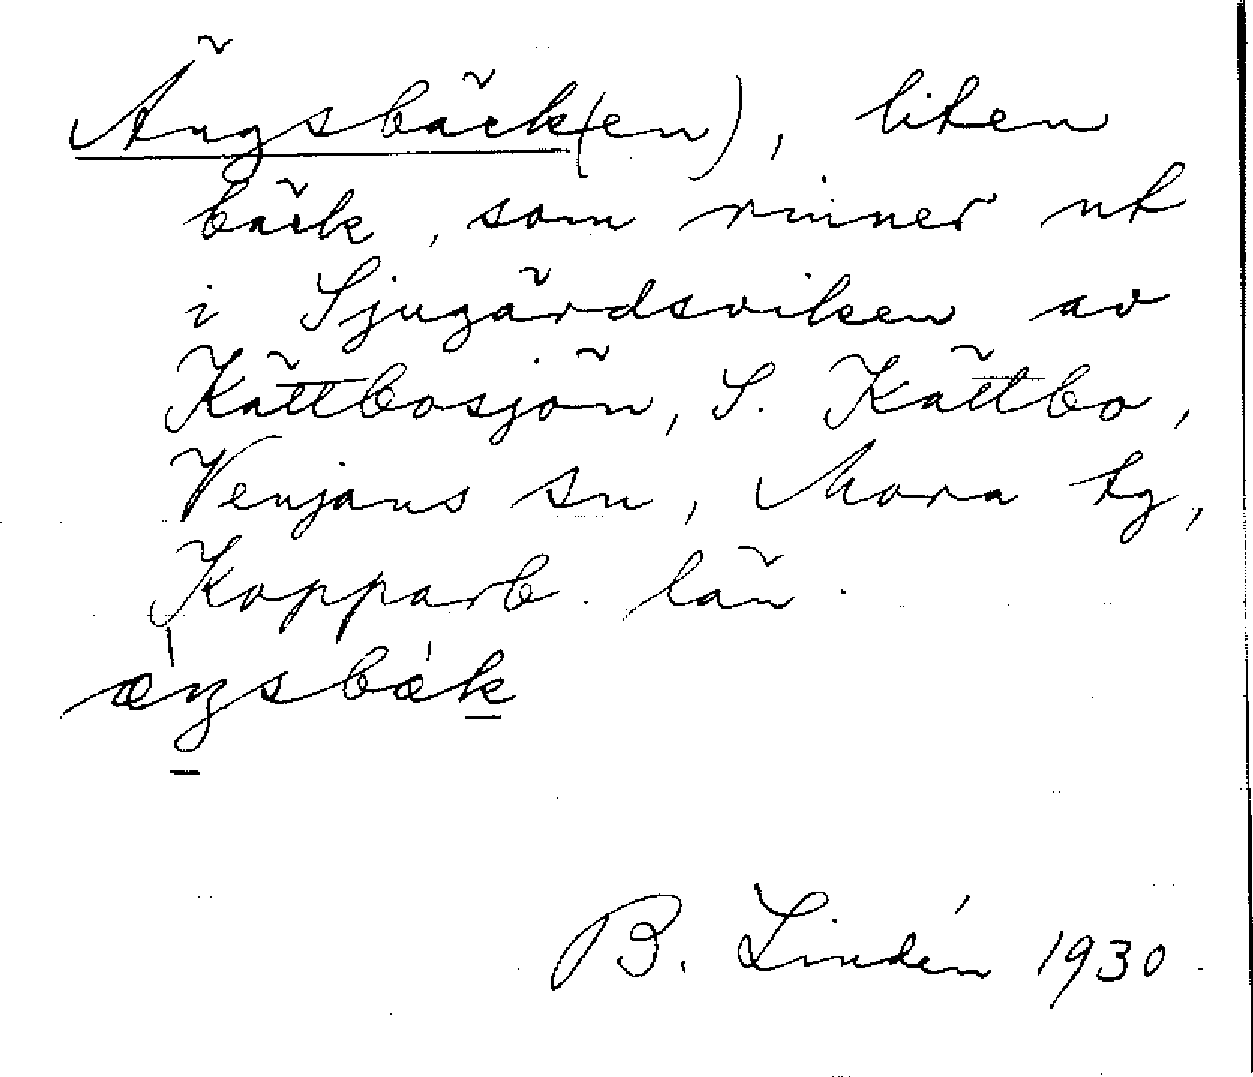 Ängsbäck(en), liten
bäck, som rinner ut
i Sjugärdsviken av
Kättbosjön, S. Kättbo,
Venjans sn, Mora tg,
Kopparb. län.
æŋsbæk
B. Lindén 1930.